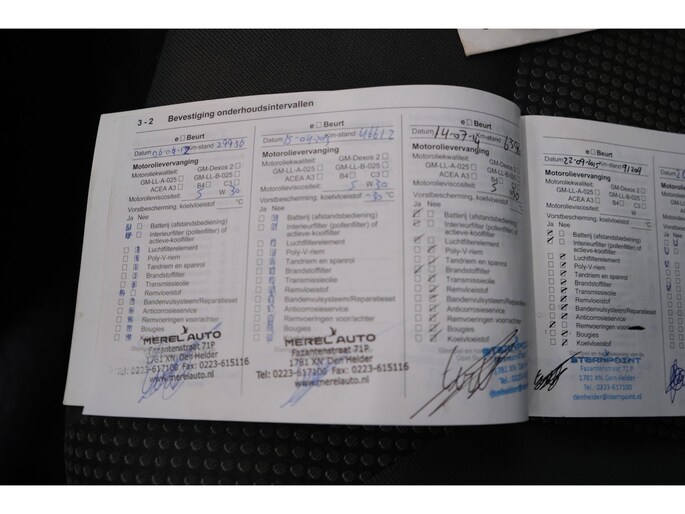 3 - 2 Bevestiging onderhoudsintervallen
e Beurt
Datum Km-stand 29936
Motorolievervanging
Motoroliekwaliteit: GM-Dexos 2
GM-LL-A-025 GM-LL-B-025
ACEA A3 B4 C3
Motorolieviscositeit: 5 W 30
Vorstbescherming, koelvloeistof °C
Ja Nee
Batterij (afstandsbediening)
Interieurfilter (pollenfilter) of
actieve-koolfilter
Luchtfilterelement
Poly-V-riem
Tandriem en spanrol
Brandstoffilter
Transmissieolie
Remvloeistof
Bandenvulsysteem/Reparatieset
Anticorrosieservice
Remvoeringen voor/achter
Bougies
MEREL AUTO
Fazantenstraat 71P
1781 XN Den Helder
Tel: 0223-617100 Fax: 0223-615116
www.merelauto.nl
e Beurt
Datum Km-stand 46612
Motorolievervanging
Motoroliekwaliteit: GM-Dexos 2
GM-LL-A-025 GM-LL-B-025
ACEA A3 B4 C3
Motorolieviscositeit: 5 W 30
Vorstbescherming, koelvloeistof -30 °C
Ja Nee
Batterij (afstandsbediening)
Interieurfilter (pollenfilter) of
actieve-koolfilter
Luchtfilterelement
Poly-V-riem
Tandriem en spanrol
Brandstoffilter
Transmissieolie
Remvloeistof
Bandenvulsysteem/Reparatieset
Anticorrosieservice
Remvoeringen voor/achter
Bougies
MEREL AUTO
Fazantenstraat 71P
1781 XN Den Helder
Tel: 0223-617100 Fax: 0223-615116
www.merelauto.nl
e Beurt
Datum 14-07-14 Km-stand
Motorolievervanging
Motoroliekwaliteit: GM-Dexos 2
GM-LL-A-025 GM-LL-B-025
ACEA A3 B4 C3
Motorolieviscositeit: 5
Vorstbescherming, koelvloeistof °C
Ja Nee
Batterij (afstandsbediening)
Interieurfilter (pollenfilter) of
actieve-koolfilter
Luchtfilterelement
Poly-V-riem
Tandriem en spanrol
Brandstoffilter
Transmissieolie
Remvloeistof
Bandenvulsysteem/Reparatieset
Anticorrosieservice
Remvoeringen voor/achter
Bougies
Koelvloeistof
STERNPOINT
Fazantenstraat 71P
1781 XN Den Helder
e Beurt
Datum 22-09-2015 Km-stand 91209
Motorolievervanging
Motoroliekwaliteit: GM-Dexos 2
GM-LL-A-025 GM-LL-B-025
ACEA A3 B4 C3
Motorolieviscositeit: 5
Vorstbescherming, koelvloeistof °C
Ja Nee
Batterij (afstandsbediening)
Interieurfilter (pollenfilter) of
actieve-koolfilter
Luchtfilterelement
Poly-V-riem
Tandriem en spanrol
Brandstoffilter
Transmissieolie
Remvloeistof
Bandenvulsysteem/Reparatieset
Anticorrosieservice
Remvoeringen
Bougies
Koelvloeistof
STERNPOINT
Fazantenstraat 71P
1781 XN Den Helder
Tel.: 0223-617100
denhelder@sternpoint.nl